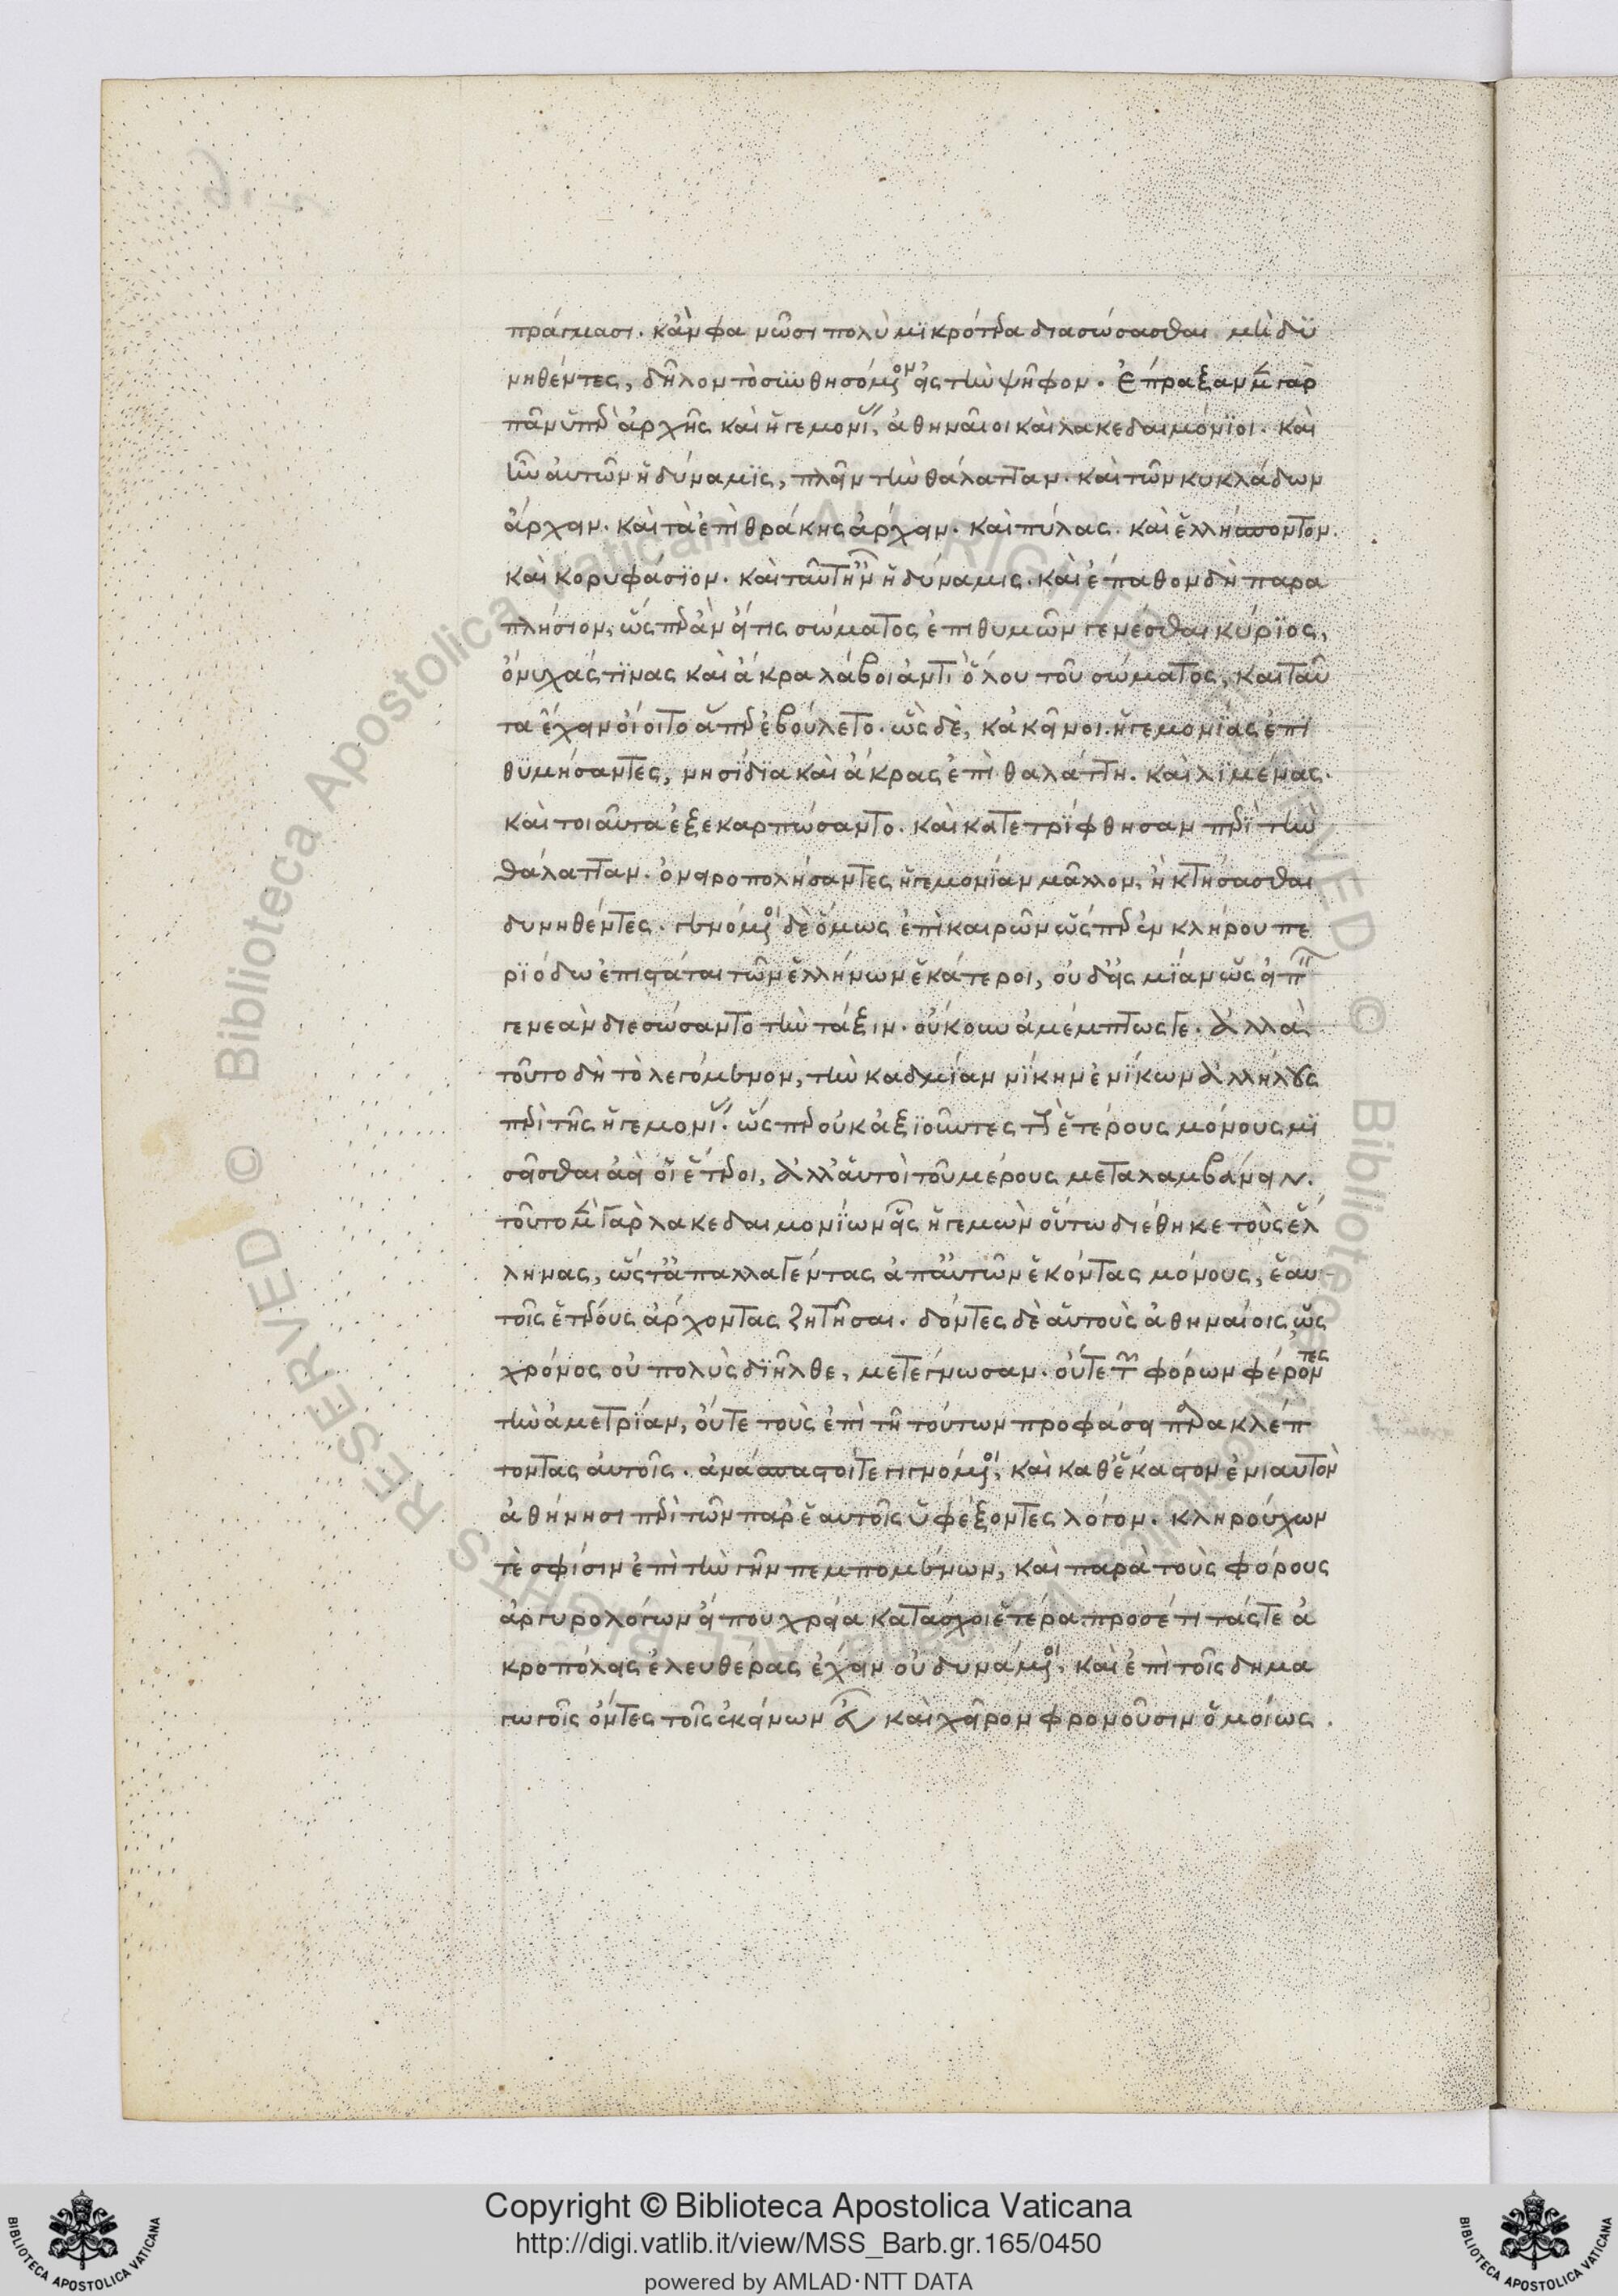 πράγμασι. κἂν φανῶσι πολὺ μϊκρότερα διασώσασθαι μὴ δϋ
νηθέντες, δῆλον τὸ σϋνθησόμενον εἰς τὴν ψῆφον. Ἔπραξαν μὲν γὰρ
πᾶν ὑπὲρ ἀρχῆς καὶ ἡγεμονίας, ἀθηναῖοι καὶ λακεδαιμόνϊοι. καὶ
ἦν αὐτῶν ἡ δύναμϊς, πλεῖν τὴν θάλατταν. καὶ τῶν κυκλάδων
ἄρχειν. καὶ τὰ ἐπὶ θράκης ἄρχειν. καὶ πύλας. καὶ ἑλλήσποντον.
καὶ κορυφάσϊον. καὶ ταῦτ' ἦν ἡ δύναμις. καὶ ἔπαθον δὴ παρα
πλήσιον, ὥσπερ ἂν εἴ τις σώματος ἐπιθυμῶν γενέσθαι κύρϊος,
ὄνυχάς τϊνας καὶ ἄκρα λάβοι ἀντὶ ὅλου τοῦ σώματος, καὶ ταῦ
τα ἔχειν οἴοιτο ἅπερ ἐβούλετο. ὣς δὲ, κἀκεῖνοι ἡγεμονϊας ἐπι
θϋμήσαντες, νησίδϊα καὶ ἄκρας ἐπὶ θαλάττη. καὶ λϊμένας.
καὶ τοιαῦτα ἐξεκαρπώσαντο. καὶ κατετρίφθησαν περὶ τὴν
θάλατταν. ὀνειροπολήσαντες ἡγεμονίαν μᾶλλον, ἢ κτήσασθαι
δυνηθέντες. γενόμενοι δὲ ὅμως ἐπὶ καιρῶν ὥσπερ ἐν κλήρου πε
ρϊόδω ἐπιστάται τῶν ἑλλήνων ἑκάτεροι, οὐδ' εἰς μϊαν ὡς εἰπεῖν
γενεὰν διεσώσαντο τὴν τάξιν. οὔκουν ἀμέμπτως γε. ἀλλὰ
τοῦτο δὴ τὸ λεγόμενον, τὴν καδμείαν νίκην ἐνίκων ἀλλήλους
περὶ τῆς ἡγεμονίας. ὥσπερ οὐκ ἀξϊοῦντες τοὺς ἑτέρους μόνους μϊ
σεῖσθαι ἀεὶ οἱ ἕτεροι, ἀλλ' αὐτοὶ τοῦ μέρους μεταλαμβάνειν.
τοῦτο μὲν γὰρ λακεδαιμονίων εἷς ἡγεμὼν οὕτω διέθηκε τοὺς ἕλ
ληνας, ὥς τ' ἀπαλλαγέντας ἀπ' αὐτῶν ἑκόντας μόνους, ἑαυ
τοῖς ἑτέρους ἄρχοντας ζητῆσαι. δόντες δὲ αὑτοὺς ἀθηναίοις ὡς
χρόνος οὐ πολὺς διῆλθε, μετέγνωσαν. οὔτε τῶν φόρων φέροντες
τὴν ἀμετρίαν, οὔτε τοὺς ἐπὶ τῆ τούτων προφάσει παρακλέπ
τοντας αὐτοῖς. ἀνάσπαστοί τε γιγνόμενοι, καὶ καθ' ἕκαστον ἐνιαυτὸν
ἀθήνησι περὶ τῶν παρ' ἑαυτοῖς ὑφέξοντες λόγον. κληρούχων
τὲ σφίσιν ἐπὶ τὴν γῆν πεμπομένων, καὶ παρὰ τοὺς φόρους
ἀργυρολόγων εἴ που χρεία κατάσχοι ἑτέρα. προσέτι τάς τε ἀ
κροπόλεις ἐλευθέρας ἔχειν οὐ δυνάμενοι, καὶ ἐπὶ τοῖς δημα
γωγοῖς ὄντες τοῖς ἐκείνων εὖ καὶ χεῖρον φρονοῦσιν ὁμοίως.
Copyright © Biblioteca Apostolica Vaticana
http://digi.vatlib.it/view/MSS_Barb.gr.165/0450
powered by AMLAD·NTT DATA